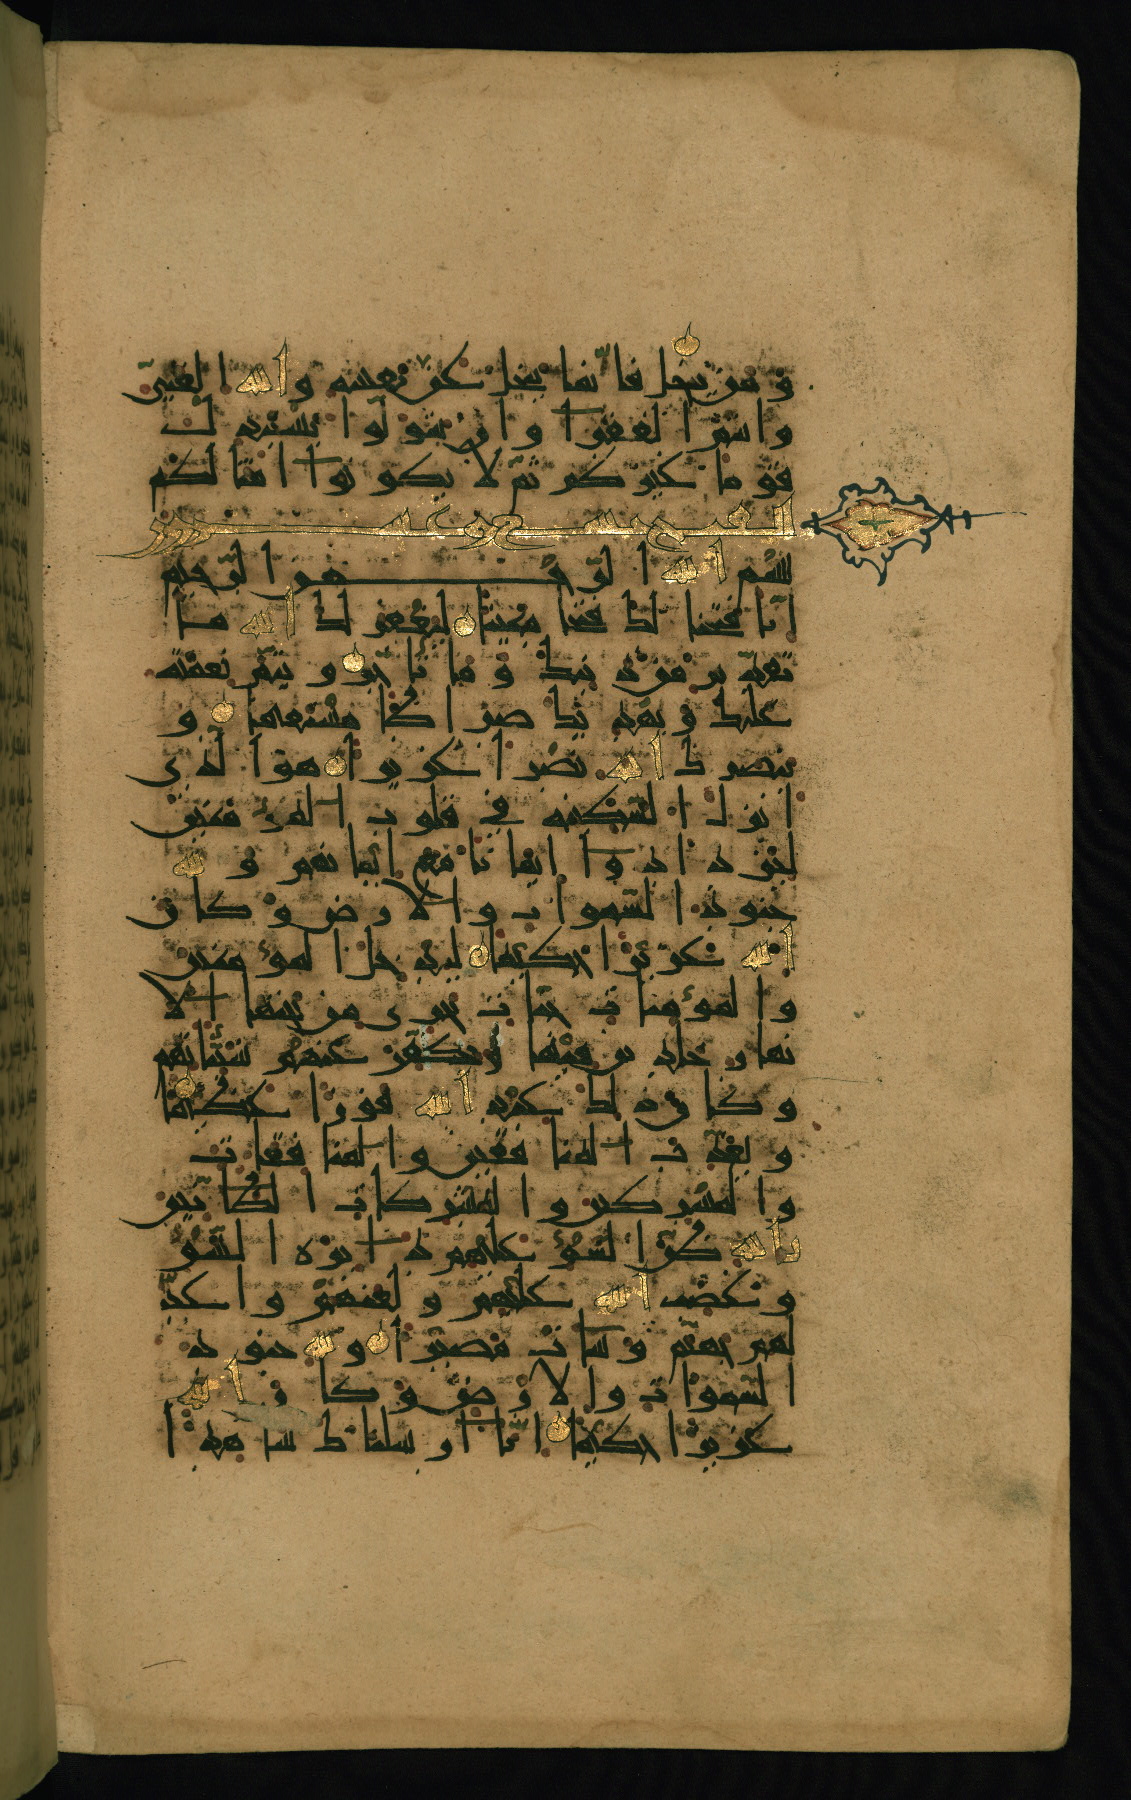 و من يبخل فا نما يبخل عن نفسه والله ا لغني
وا نتم ا لفقرا وا ن تتو لوا يستبد ل
قو ما غير كم ثم لا يكو نوا ا مثا لكم
الفتح تسع وعشرون
بسم الله ا لرحمن ا لرحيم
ا نا فتحنا لك فتحا مبينا ليغفر لك الله ما
تقد م من ذ نبك و ما تا خر و يتم نعمته
عليك و يهد يك صر ا طا مستقيما و
ينصر ك الله نصر ا عز يز ا هو ا لذ ي
ا نز ل ا لسكينه في قلو ب ا لمؤ منين
ليز د ا د و ا ا يما نا مع ا يما نهم و لله
جنو د ا لسموا ت وا لا ر ض و كا ن
الله عز يز ا حكيما ليد خل ا لمؤ منين
وا لمؤ منا ت جنا ت تجر ي من تحتها ا لا
نها ر خا لد ين فيها و يكفر عنهم سيا تهم
و كا ن ذ لك عند الله فو ز ا عظيما
و يعذ ب ا لمنا فقين وا لمنا فقا ت
وا لمشر كين وا لمشر كا ت ا لظا نين
بالله ظن ا لسو عليهم د ا ئر ه ا لسو
و غضب الله عليهم و لعنهم وا عد
لهم جهنم و سا ت مصير ا و لله جنو د
ا لسموا ت وا لا ر ض و كا ن الله
عز يز ا حكيما ا نا ا ر سلنا ك شا هد ا